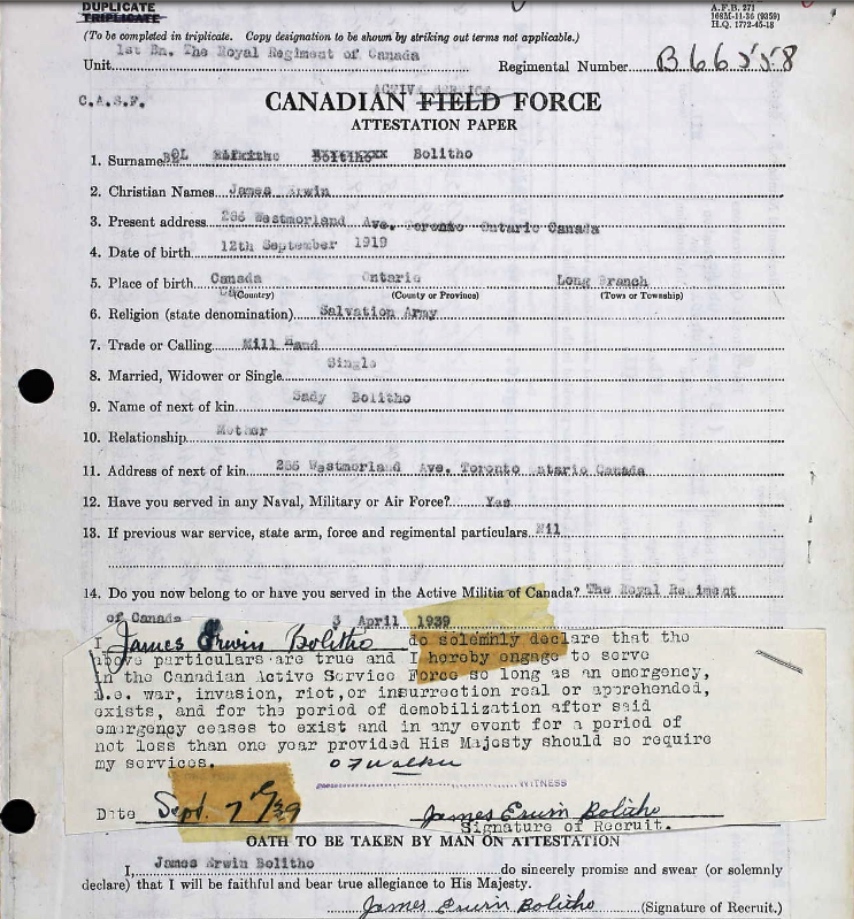 DUPLICATE
TRIPLICATE
A.F.B. 271
168M-11-36 (9359)
H.Q. 1772-45-18
(To be completed in triplicate. Copy designation to be shown by striking out terms not applicable.)
1st Bn. The Royal Regiment of Canada
Unit Regimental Number B66558
ACTIVE SERVICE
C.A.S.F. CANADIAN FIELD FORCE
ATTESTATION PAPER
1. Surname Bolitho
2. Christian Names James Erwin
3. Present address 286 Westmorland Ave. Toronto Ontario Canada
4. Date of birth 12th September 1919
5. Place of birth Canada Ontario Long Branch
(Country) (County or Province) (Town or Township)
6. Religion (state denomination) Salvation Army
7. Trade or Calling Mill Hand
8. Married, Widower or Single Single
9. Name of next of kin Sady Bolitho
10. Relationship Mother
11. Address of next of kin 286 Westmorland Ave. Toronto Ontario Canada
12. Have you served in any Naval, Military or Air Force? Yes
13. If previous war service, state arm, force and regimental particulars Nil
14. Do you now belong to or have you served in the Active Militia of Canada? The Royal Regiment
of Canada 3 April 1939
I James Erwin Bolitho do solemnly declare that the
above particulars are true and I hereby engage to serve
in the Canadian Active Service Force so long as an emergency,
i.e. war, invasion, riot, or insurrection real or apprehended,
exists, and for the period of demobilization after said
emergency ceases to exist and in any event for a period of
not less than one year provided His Majesty should so require
my services. O F Walker
WITNESS
Date Sept. 7th/39 James Erwin Bolitho
Signature of Recruit.
OATH TO BE TAKEN BY MAN ON ATTESTATION
I, James Erwin Bolitho do sincerely promise and swear (or solemnly
declare) that I will be faithful and bear true allegiance to His Majesty.
James Erwin Bolitho (Signature of Recruit.)